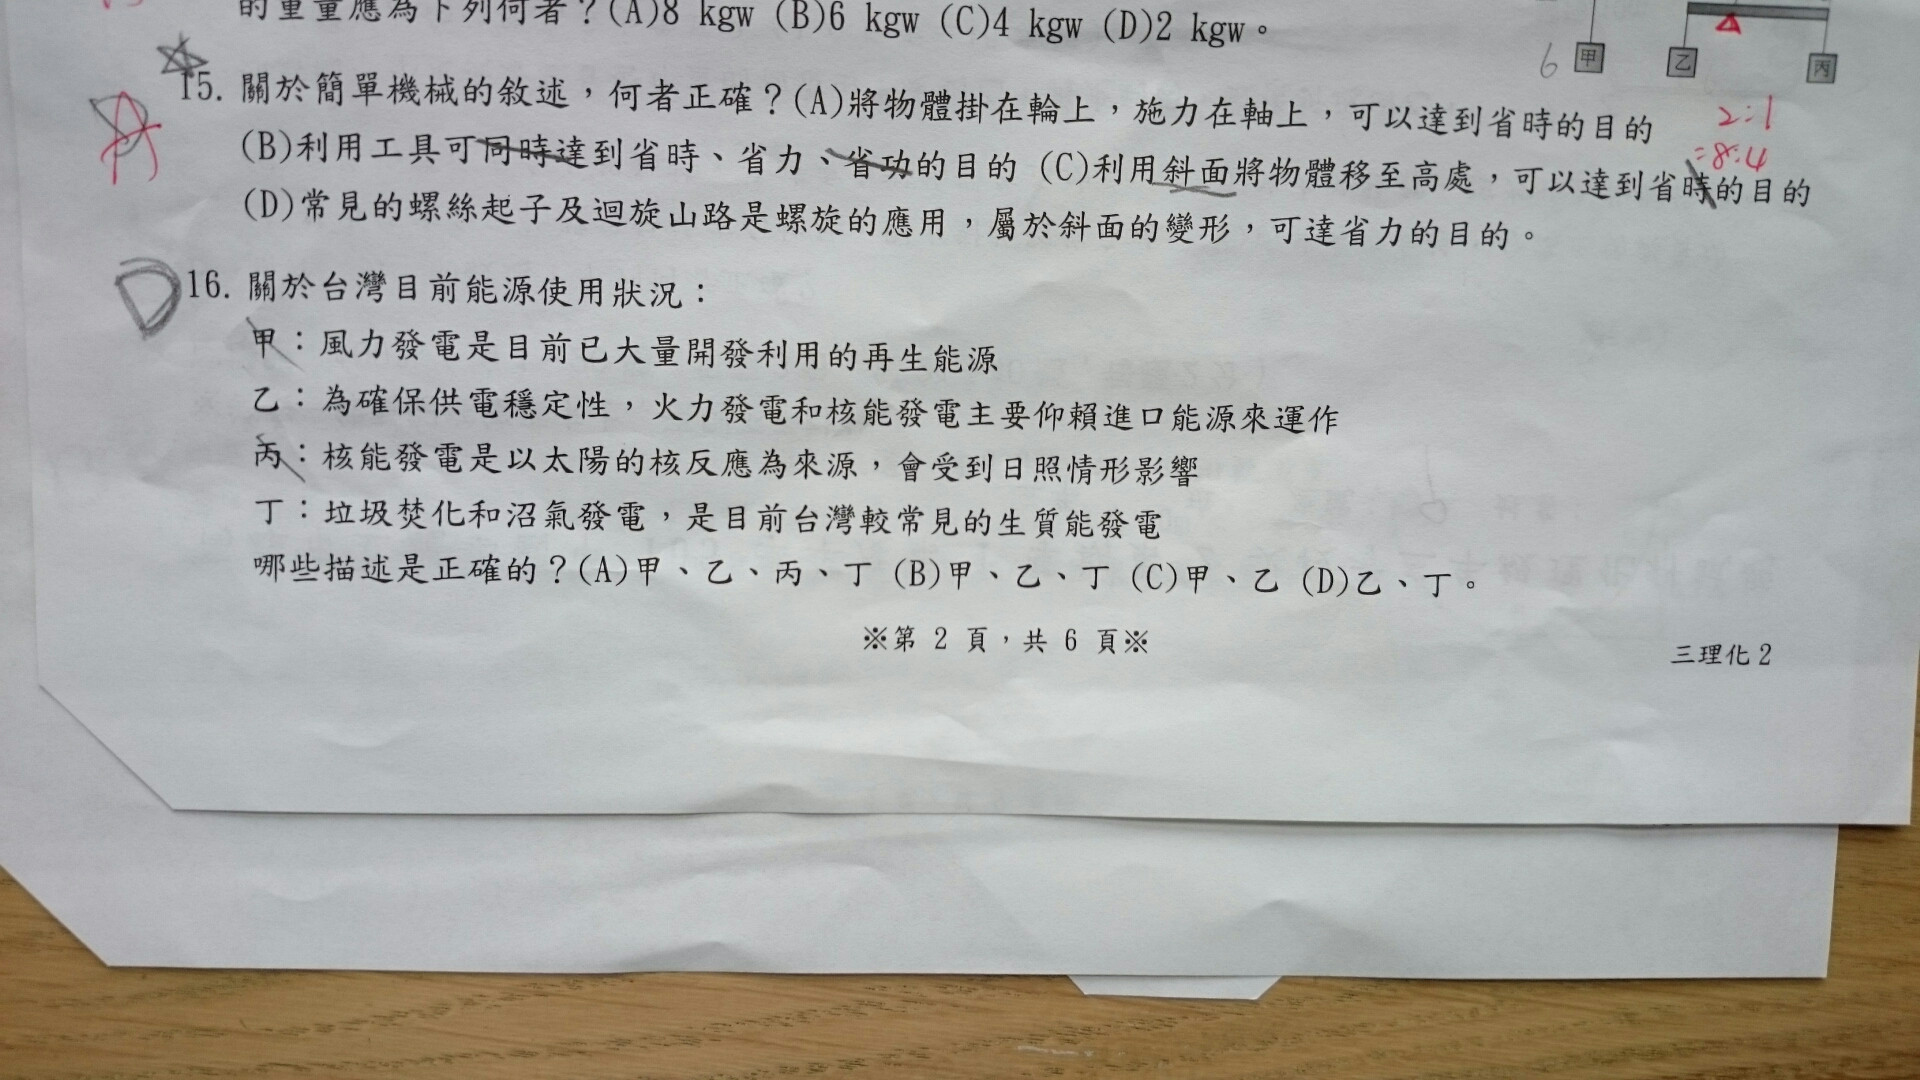 的重量應為下列何者？(A)8 kgw (B)6 kgw (C)4 kgw (D)2 kgw。
6 甲 乙 丙
15. 關於簡單機械的敘述，何者正確？(A)將物體掛在輪上，施力在軸上，可以達到省時的目的
2:1
A
(B)利用工具可同時達到省時、省力、省功的目的 (C)利用斜面將物體移至高處，可以達到省時的目的
=8:4
(D)常見的螺絲起子及迴旋山路是螺旋的應用，屬於斜面的變形，可達省力的目的。
D
16. 關於台灣目前能源使用狀況：
甲：風力發電是目前已大量開發利用的再生能源
乙：為確保供電穩定性，火力發電和核能發電主要仰賴進口能源來運作
丙：核能發電是以太陽的核反應為來源，會受到日照情形影響
丁：垃圾焚化和沼氣發電，是目前台灣較常見的生質能發電
哪些描述是正確的？(A)甲、乙、丙、丁 (B)甲、乙、丁 (C)甲、乙 (D)乙、丁。
※第 2 頁，共 6 頁※
三理化2